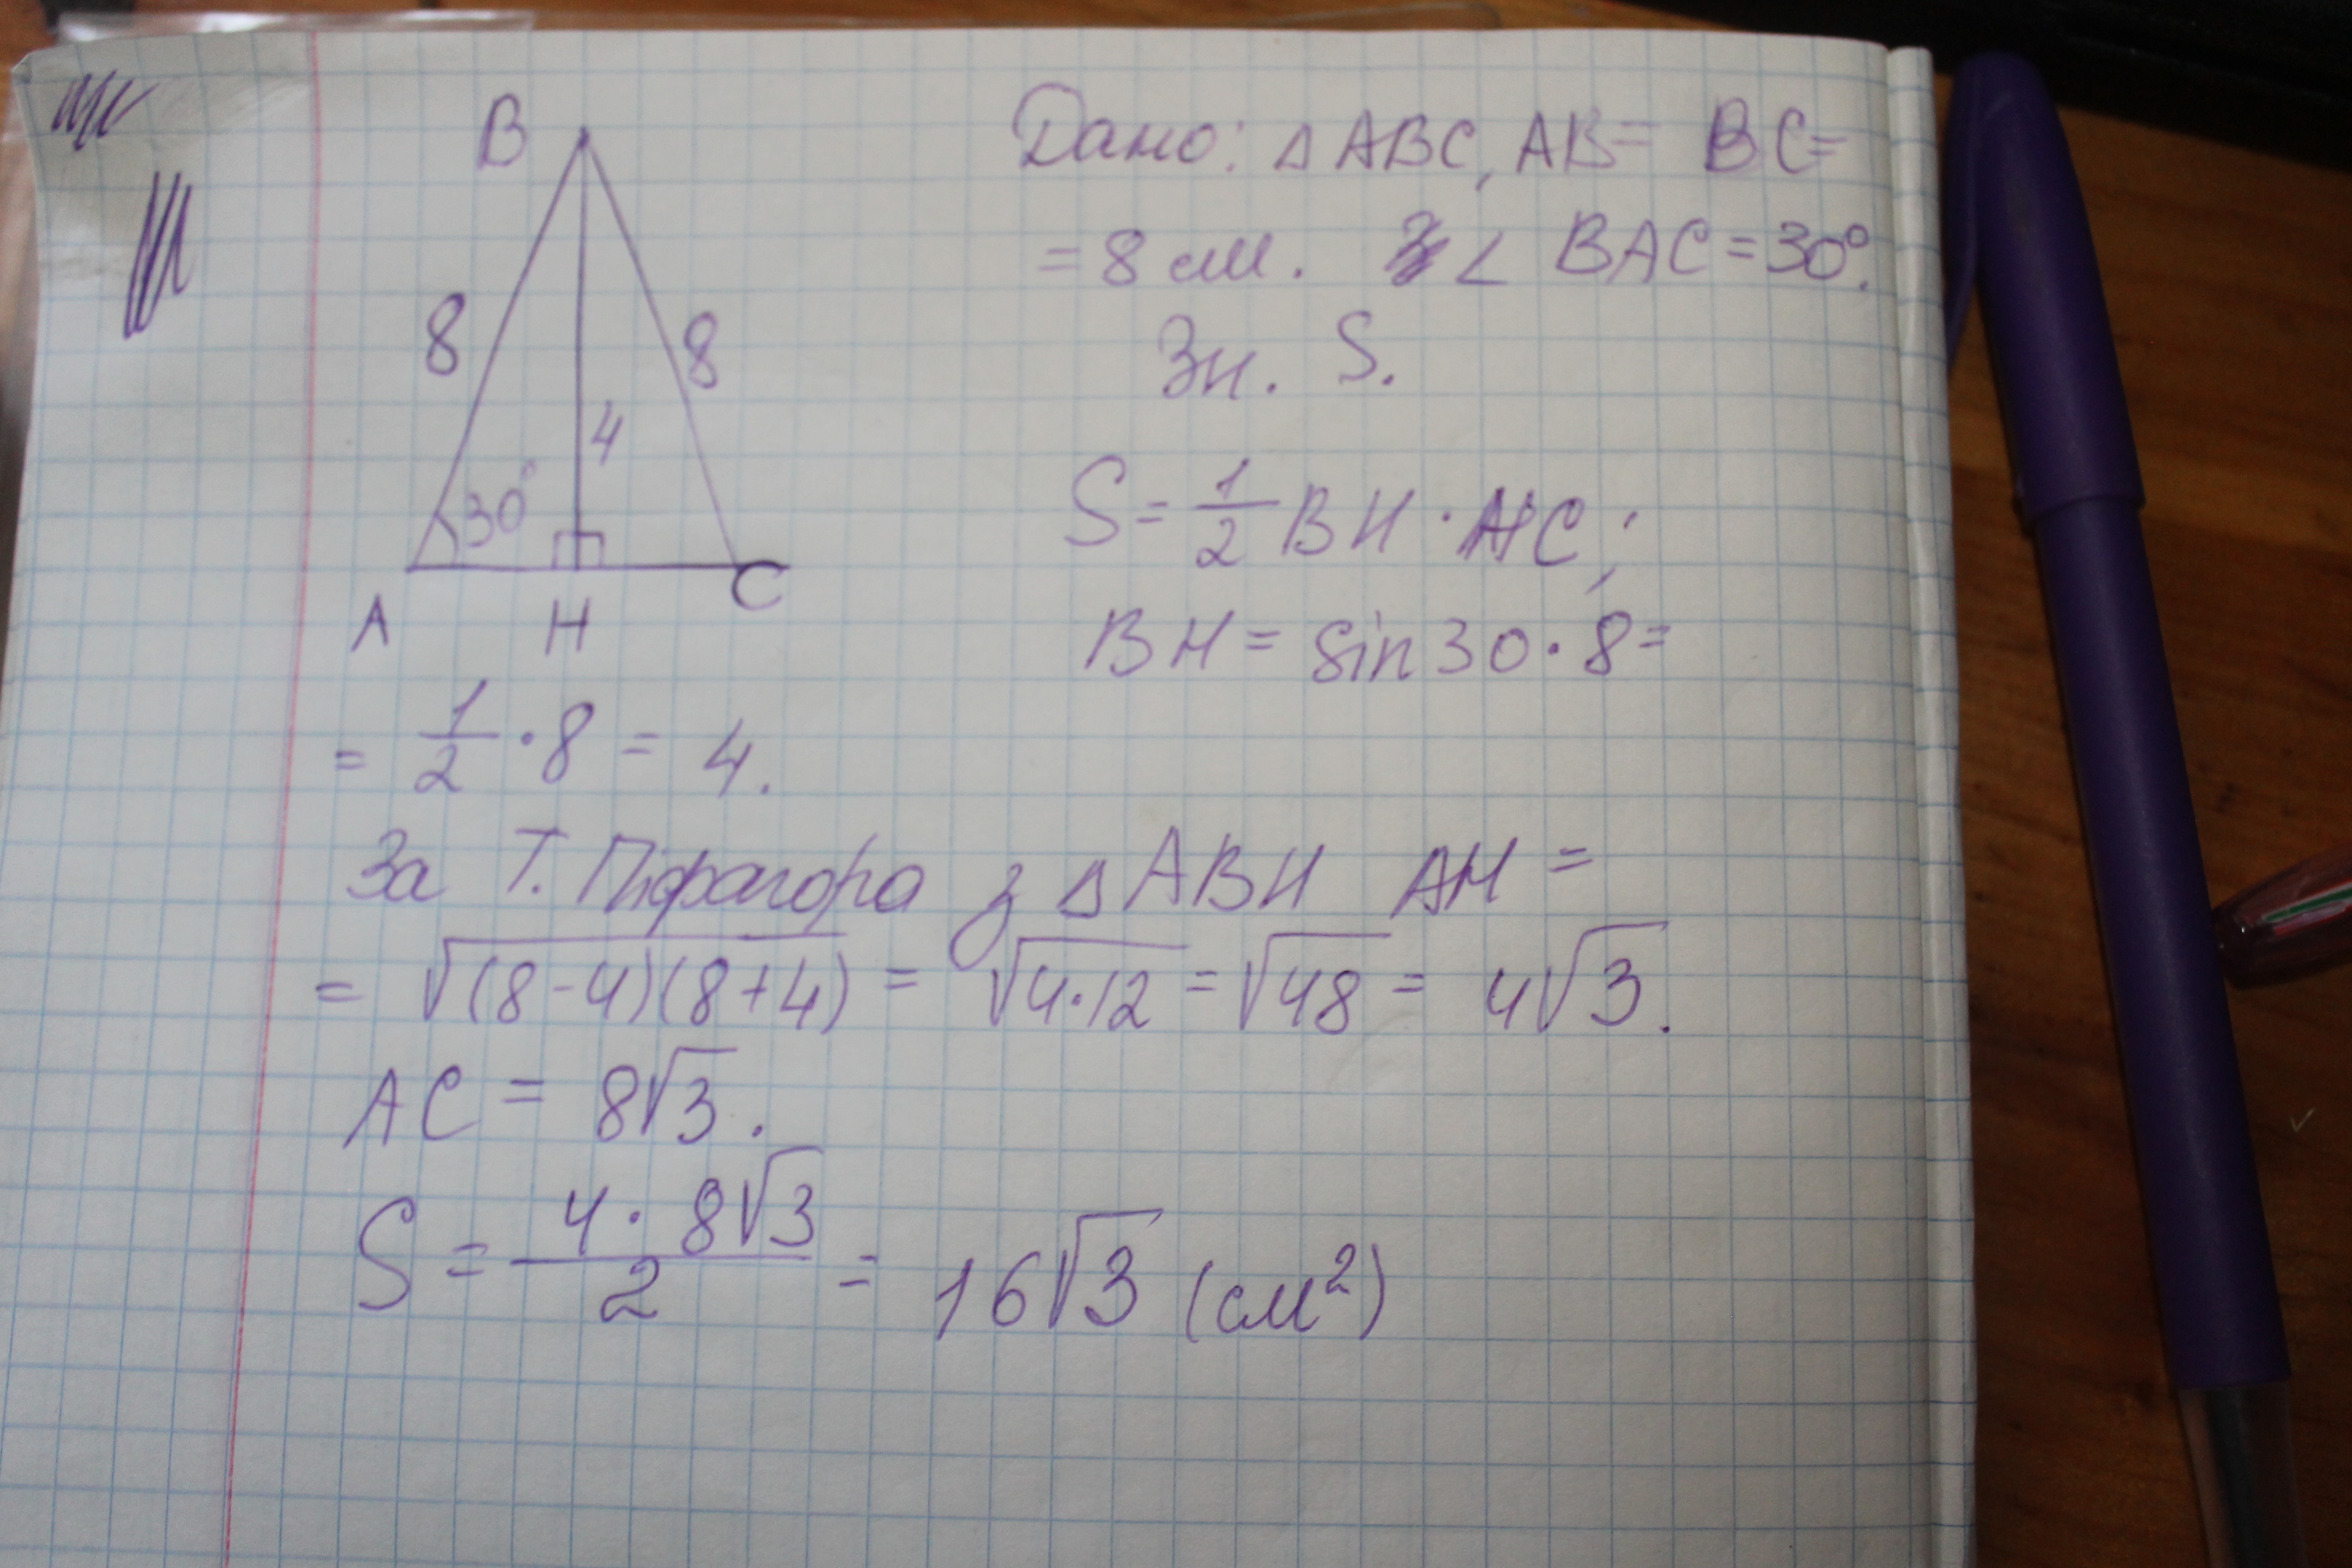 B
Дано: △ ABC, AB = BC =
= 8 см. ∠ BAC = 30°.
Зн. S.
8
8
4
30°
A
H
C
S = 1/2 BH · AC;
BH = sin 30 · 8 =
= 1/2 · 8 = 4.
За Т. Піфагора з △ ABH AH =
= √(8-4)(8+4) = √4·12 = √48 = 4√3.
AC = 8√3.
S = 4 · 8√3 / 2 = 16√3 (см²)